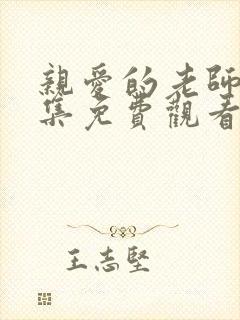 親愛的老師
集免費觀看
王志堅